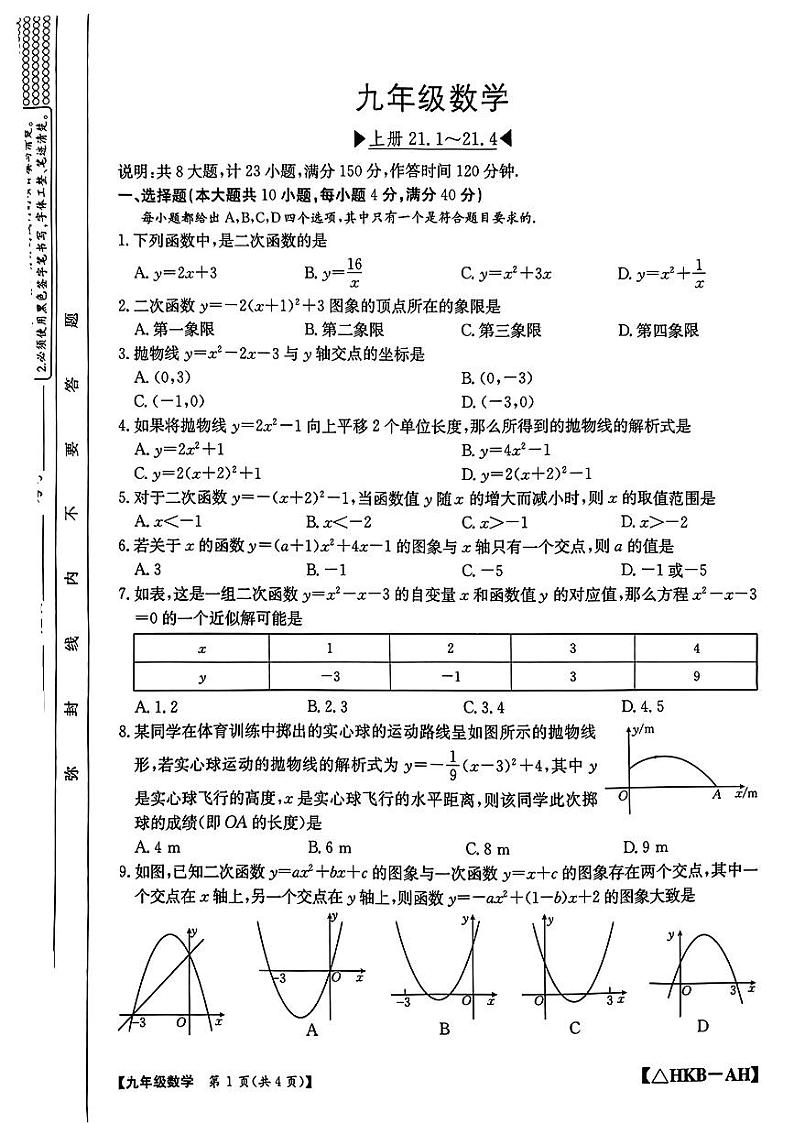 九年级数学
▶上册 21.1～21.4◀
说明:共 8 大题,计 23 小题,满分 150 分,作答时间 120 分钟.
一、选择题(本大题共 10 小题,每小题 4 分,满分 40 分)
每小题都给出 A,B,C,D 四个选项,其中只有一个是符合题目要求的.
1. 下列函数中,是二次函数的是
A. y=2x+3 B. y=16/x C. y=x²+3x D. y=x²+1/x
2. 二次函数 y=-2(x+1)²+3 图象的顶点所在的象限是
A. 第一象限 B. 第二象限 C. 第三象限 D. 第四象限
3. 抛物线 y=x²-2x-3 与 y 轴交点的坐标是
A. (0,3) B. (0,-3)
C. (-1,0) D. (-3,0)
4. 如果将抛物线 y=2x²-1 向上平移 2 个单位长度,那么所得到的抛物线的解析式是
A. y=2x²+1 B. y=4x²-1
C. y=2(x+2)²+1 D. y=2(x+2)²-1
5. 对于二次函数 y=-(x+2)²-1,当函数值 y 随 x 的增大而减小时,则 x 的取值范围是
A. x<-1 B. x<-2 C. x>-1 D. x>-2
6. 若关于 x 的函数 y=(a+1)x²+4x-1 的图象与 x 轴只有一个交点,则 a 的值是
A. 3 B. -1 C. -5 D. -1 或-5
7. 如表,这是一组二次函数 y=x²-x-3 的自变量 x 和函数值 y 的对应值,那么方程 x²-x-3
=0 的一个近似解可能是
x 1 2 3 4
y -3 -1 3 9
A. 1.2 B. 2.3 C. 3.4 D. 4.5
8. 某同学在体育训练中掷出的实心球的运动路线呈如图所示的抛物线
形,若实心球运动的抛物线的解析式为 y=-1/9(x-3)²+4,其中 y
是实心球飞行的高度,x 是实心球飞行的水平距离,则该同学此次掷
球的成绩(即 OA 的长度)是
y/m
O A x/m
A. 4 m B. 6 m C. 8 m D. 9 m
9. 如图,已知二次函数 y=ax²+bx+c 的图象与一次函数 y=x+c 的图象存在两个交点,其中一
个交点在 x 轴上,另一个交点在 y 轴上,则函数 y=-ax²+(1-b)x+2 的图象大致是
y y y y y
-3 O x -3 O x -3 O x O 3 x O 3 x
A B C D
【九年级数学 第 1 页(共 4 页)】
【△HKB-AH】
2.必须使用黑色签字笔书写,字体工整、笔迹清楚。
弥 封 线 内 不 要 答 题